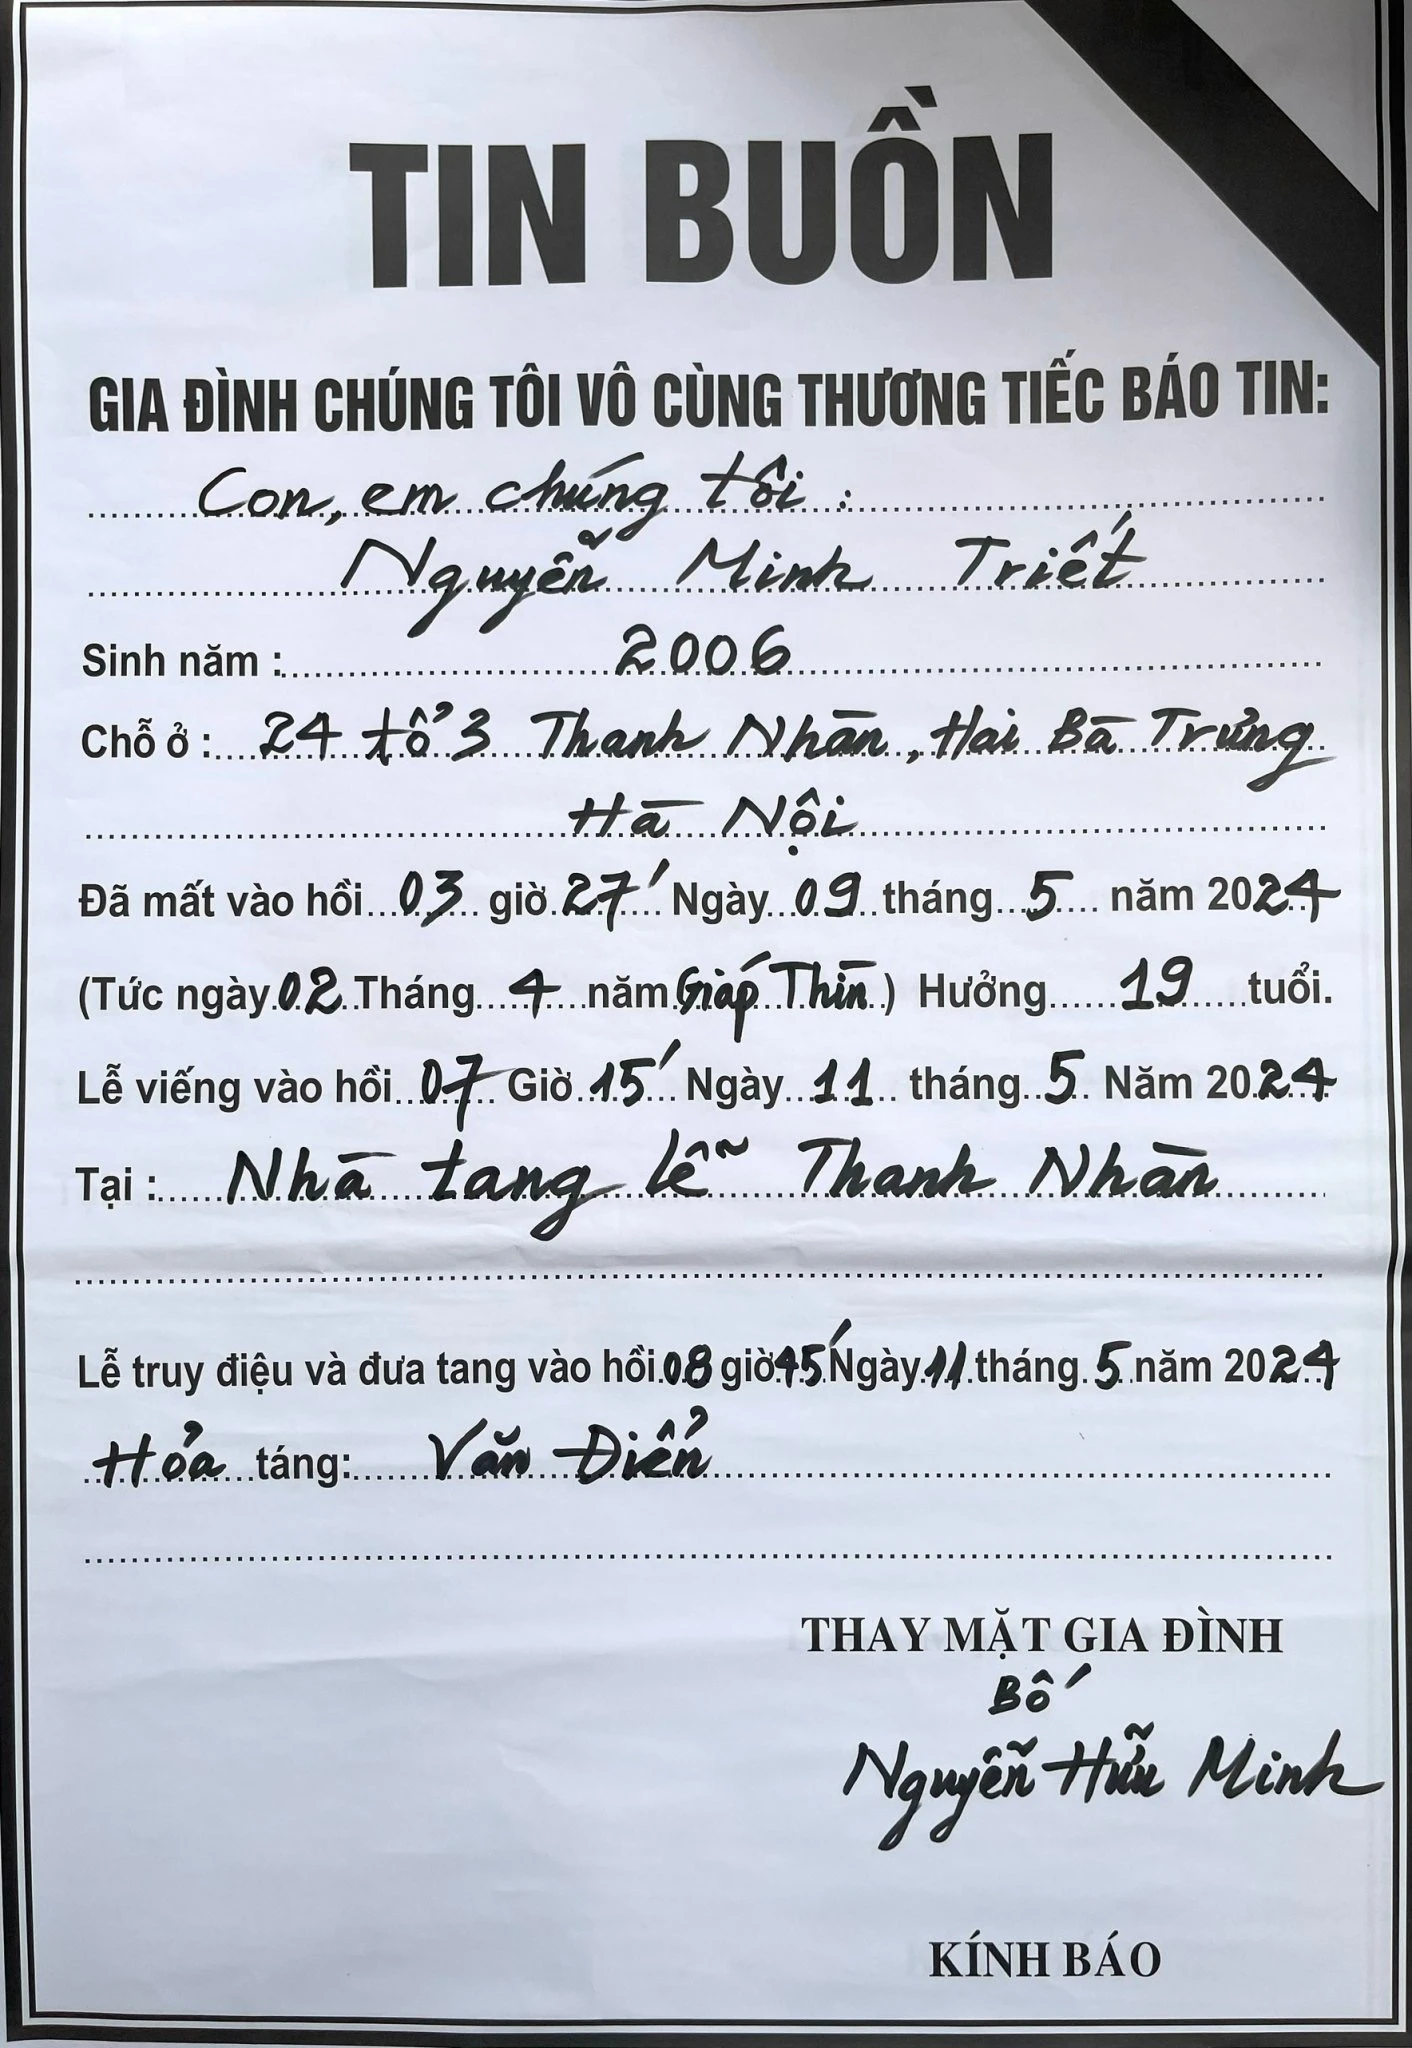 TIN BUỒN
GIA ĐÌNH CHÚNG TÔI VÔ CÙNG THƯƠNG TIẾC BÁO TIN:
Con, em chúng tôi :
Nguyễn Minh Triết
Sinh năm : 2006
Chỗ ở : 24 tổ 3 Thanh Nhàn, Hai Bà Trưng
Hà Nội
Đã mất vào hồi 03 giờ 27' Ngày 09 tháng 5 năm 2024
(Tức ngày 02 Tháng 4 năm Giáp Thìn) Hưởng 19 tuổi.
Lễ viếng vào hồi 07 Giờ 15' Ngày 11 tháng 5 Năm 2024
Tại : Nhà tang lễ Thanh Nhàn
Lễ truy điệu và đưa tang vào hồi 08 giờ 15' Ngày 11 tháng 5 năm 2024
Hỏa táng: Văn Điển
THAY MẶT GIA ĐÌNH
Bố
Nguyễn Hữu Minh
KÍNH BÁO